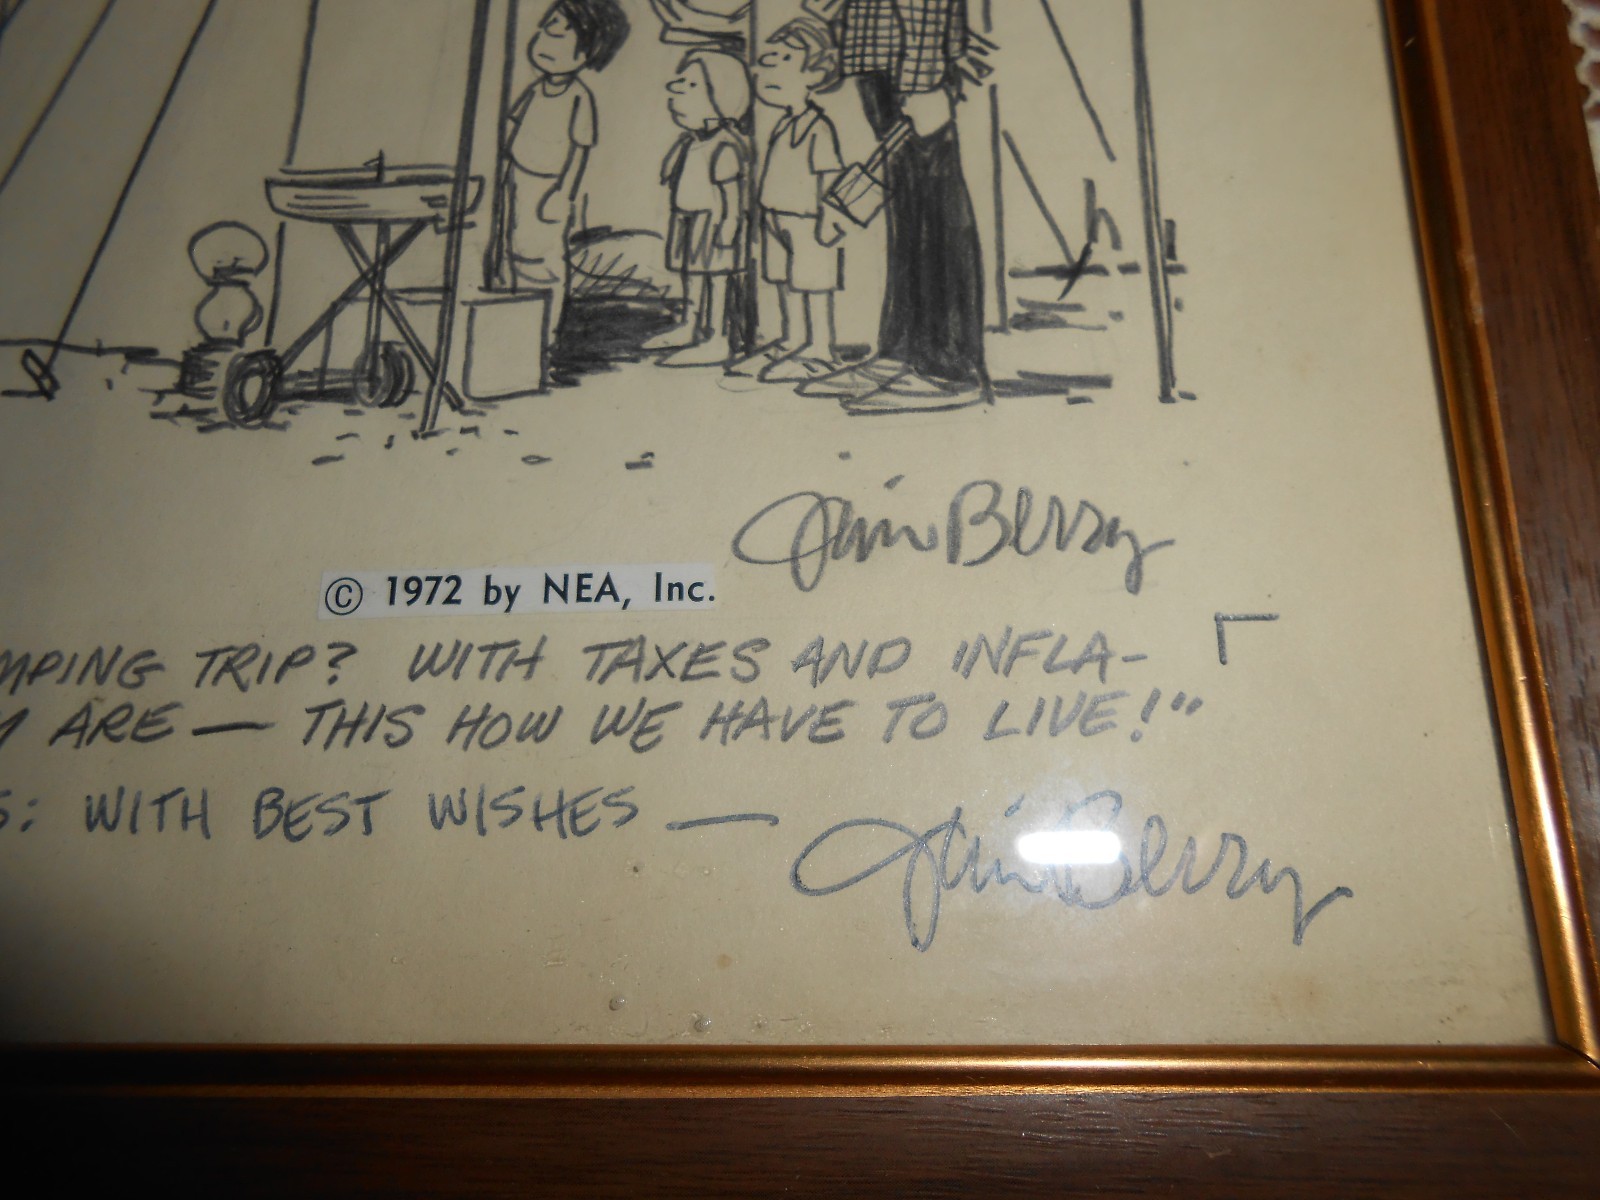 Jim Berry
© 1972 by NEA, Inc.
MPING TRIP? WITH TAXES AND INFLA-
ARE — THIS HOW WE HAVE TO LIVE!"
S: WITH BEST WISHES —
Jim Berry